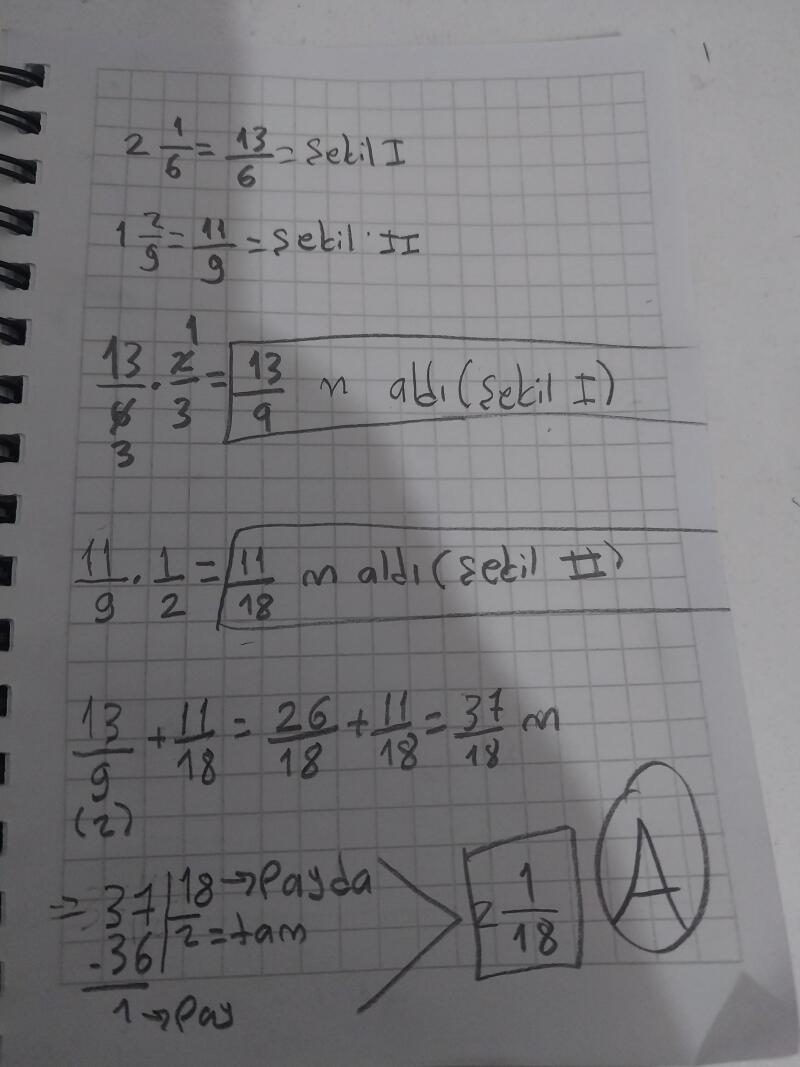 2 1/6 = 13/6 = Sekil I
1 2/9 = 11/9 = Sekil II
13/6 · 2/3 = 13/9 m aldı (Şekil I)
1
3
11/9 · 1/2 = 11/18 m aldı (Şekil II)
13/9 + 11/18 = 26/18 + 11/18 = 37/18 m
(2)
A
⇒ 37 | 18 → Payda
-36 | 2 = tam
1 → Pay
2 1/18